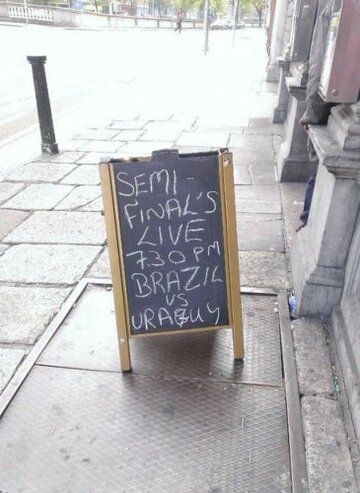 SEMI-
FINAL'S
LIVE
730 PM
BRAZIL
VS
URAGUY